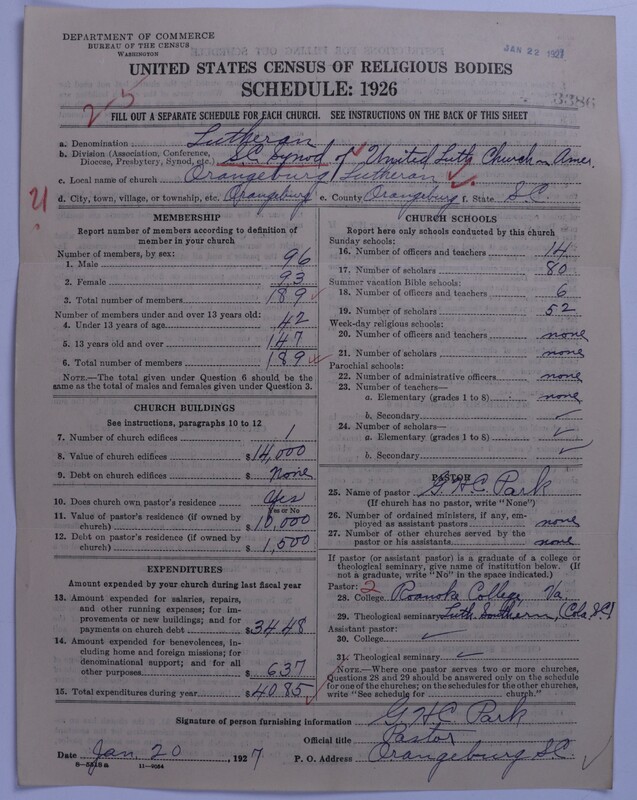 DEPARTMENT OF COMMERCE
BUREAU OF THE CENSUS
WASHINGTON
JAN 22 1927
UNITED STATES CENSUS OF RELIGIOUS BODIES
SCHEDULE: 1926
3386
2-5
FILL OUT A SEPARATE SCHEDULE FOR EACH CHURCH. SEE INSTRUCTIONS ON THE BACK OF THIS SHEET
a. Denomination Lutheran
b. Division (Association, Conference, Diocese, Presbytery, Synod, etc.) S.C. Synod of United Luth Church in Amer.
c. Local name of church Orangeburg Lutheran
d. City, town, village, or township, etc. Orangeburg e. County Orangeburg f. State S.C.
MEMBERSHIP
Report number of members according to definition of
member in your church
Number of members, by sex:
1. Male 96
2. Female 93
3. Total number of members 189
Number of members under and over 13 years old:
4. Under 13 years of age 42
5. 13 years old and over 147
6. Total number of members 189
NOTE.—The total given under Question 6 should be the
same as the total of males and females given under Question 3.
CHURCH BUILDINGS
See instructions, paragraphs 10 to 12
7. Number of church edifices 1
8. Value of church edifices $14,000
9. Debt on church edifices $ None
10. Does church own pastor's residence Yes
Yes or No
11. Value of pastor's residence (if owned by
church) $10,000
12. Debt on pastor's residence (if owned by
church) $1,500
EXPENDITURES
Amount expended by your church during last fiscal year
13. Amount expended for salaries, repairs,
and other running expenses; for im-
provements or new buildings; and for
payments on church debt $3448
14. Amount expended for benevolences, in-
cluding home and foreign missions; for
denominational support; and for all
other purposes $637
15. Total expenditures during year $4085
CHURCH SCHOOLS
Report here only schools conducted by this church
Sunday schools:
16. Number of officers and teachers 14
17. Number of scholars 80
Summer vacation Bible schools:
18. Number of officers and teachers 6
19. Number of scholars 52
Week-day religious schools:
20. Number of officers and teachers none
21. Number of scholars none
Parochial schools:
22. Number of administrative officers none
23. Number of teachers—
a. Elementary (grades 1 to 8) none
b. Secondary ✓
24. Number of scholars—
a. Elementary (grades 1 to 8) ✓
b. Secondary ✓
PASTOR
25. Name of pastor G. H. C. Park
(If church has no pastor, write "None")
26. Number of ordained ministers, if any, em-
ployed as assistant pastors none
27. Number of other churches served by the
pastor or his assistants none
If pastor (or assistant pastor) is a graduate of a college or
theological seminary, give name of institution below. (If
not a graduate, write "No" in the space indicated.)
Pastor: 2
28. College Roanoke College, Va.
29. Theological seminary Luth Southern, (Cola S.C.)
Assistant pastor:
30. College ✓
31. Theological seminary ✓
NOTE.—Where one pastor serves two or more churches,
Questions 28 and 29 should be answered only on the schedule
for one of the churches; on the schedules for the other churches,
write "See schedule for church."
Signature of person furnishing information G. H. C. Park
Official title Pastor
Date Jan. 20, 1927 P. O. Address Orangeburg S.C.
8-5518a 11-9064